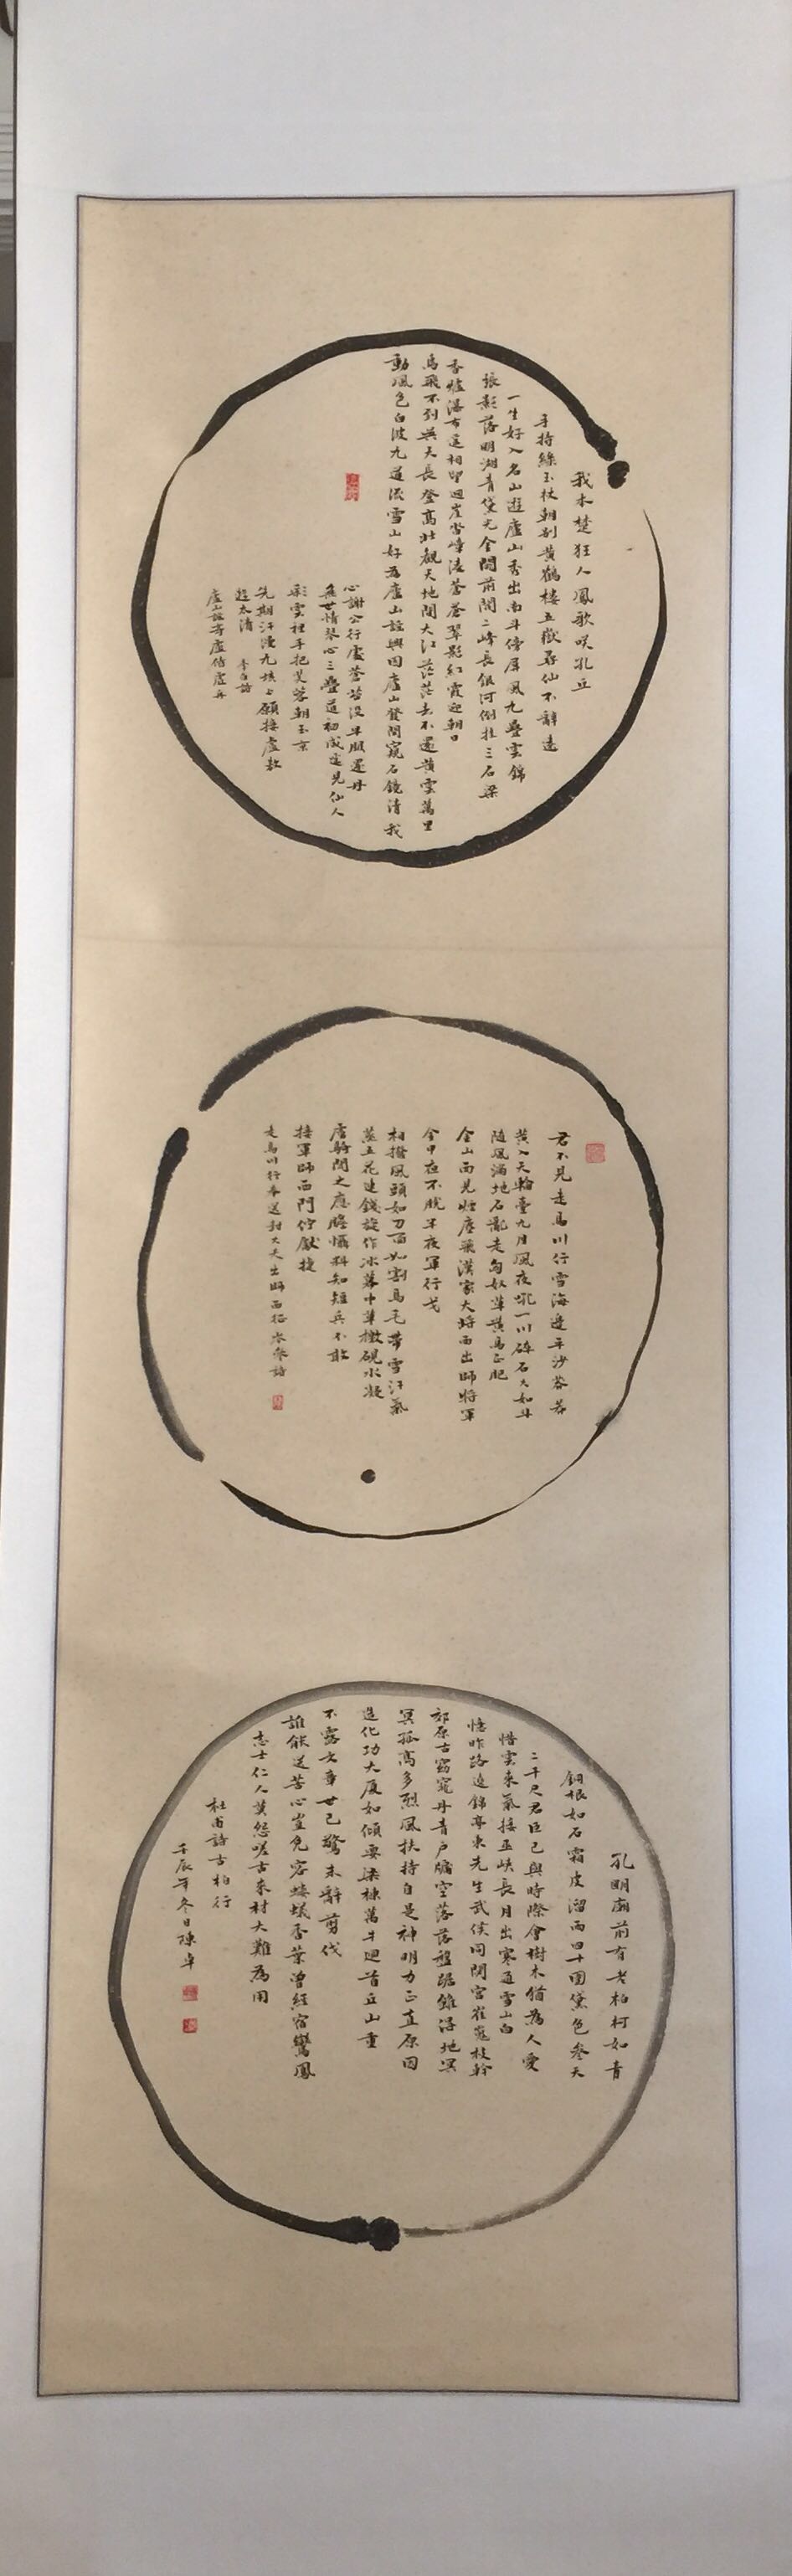 我本楚狂人鳳歌咲孔丘
手持綠玉杖朝別黃鶴樓五嶽尋仙不辭遠
一生好入名山遊廬山秀出南斗傍屏風九疊雲錦
張影落明湖青黛光金闕前開二峰長銀河倒挂三石梁
香爐瀑布遙相望迴崖沓嶂凌蒼蒼翠影紅霞迎朝日
鳥飛不到吳天長登高壯觀天地間大江茫茫去不還黃雲萬里
動風色白波九道流雪山好為廬山謠興因廬山發閒窺石鏡清我
心謝公行處蒼苔沒早服還丹
無世情琴心三疊道初成遙見仙人
彩雲裡手把芙蓉朝玉京
先期汗漫九垓上願接盧敖
遊太清 李白詩
廬山謠寄盧侍虛舟
君不見走馬川行雪海邊平沙莽莽
黃入天輪臺九月風夜吼一川碎石大如斗
隨風滿地石亂走匈奴草黃馬正肥
金山西見煙塵飛漢家大將西出師將軍
金甲夜不脫半夜軍行戈
相撥風頭如刀面如割馬毛帶雪汗氣
蒸五花連錢旋作冰幕中草檄硯水凝
虜騎聞之應膽懾料知短兵不敢
接軍師西門佇獻捷
走馬川行奉送封大夫出師西征岑參詩
孔明廟前有老柏柯如青
銅根如石霜皮溜雨四十圍黛色參天
二千尺君臣已與時際會樹木猶為人愛
惜雲來氣接巫峽長月出寒通雪山白
憶昨路遶錦亭東先生武侯同閟宮崔嵬枝幹
郊原古窈窕丹青戶牖空落落盤踞雖得地冥
冥孤高多烈風扶持自是神明力正直原因
造化功大廈如傾要梁棟萬牛迴首丘山重
不露文章世已驚未辭剪伐
誰能送苦心豈免容螻蟻香葉曾經宿鸞鳳
志士仁人莫怨嗟古來材大難為用
杜甫詩古柏行
壬辰年冬日陳卓